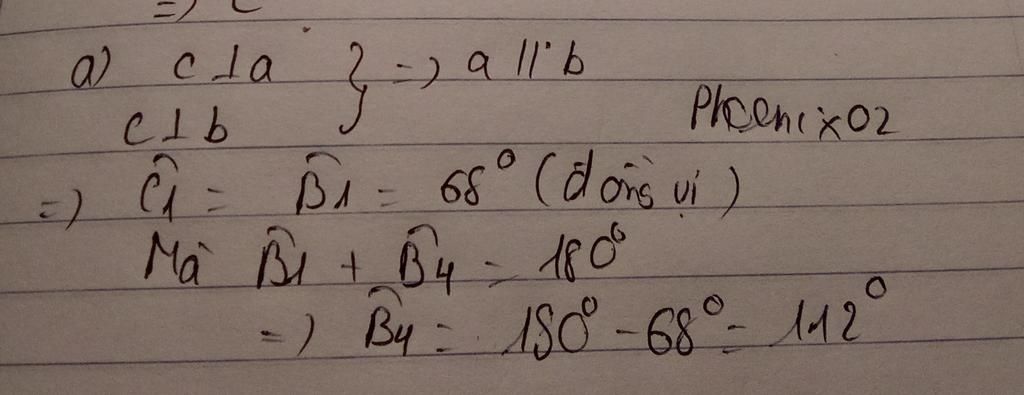 =) C
a) c ⊥ a } =) a // b
c ⊥ b
Phoenix02
=) Ĉ1 = B̂1 = 68° (đồng vị)
Mà B̂1 + B̂4 = 180°
=) B̂4 = 180° - 68° = 112°